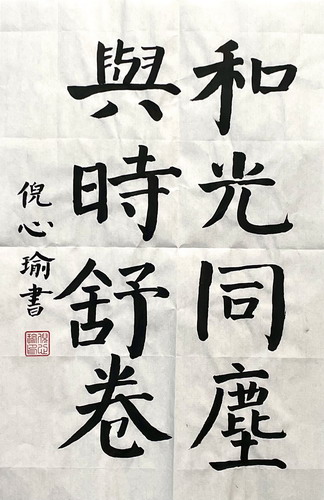 和光同塵
與時舒卷
倪心瑜書